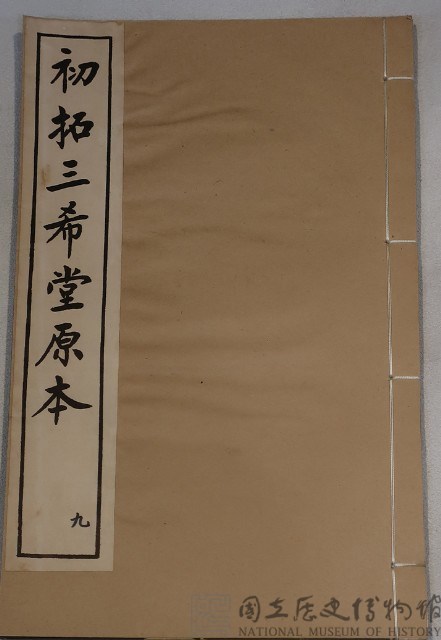 初拓三希堂原本
九
國立歷史博物館
NATIONAL MUSEUM OF HISTORY